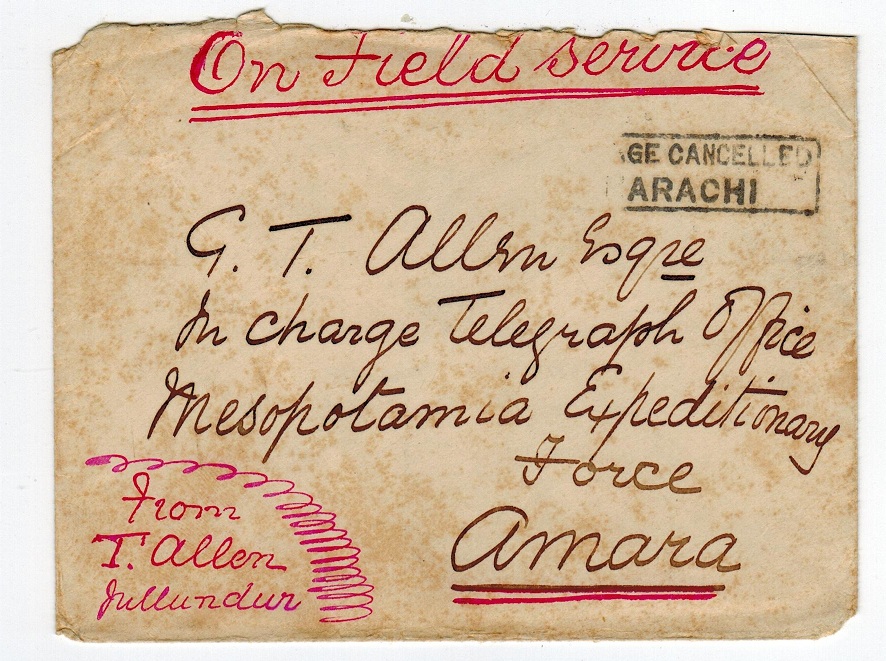 On Field service
GE CANCELLED
ARACHI
G. T. Allen Esqre
In charge Telegraph Office
Mesopotamia Expeditionary
Force
Amara
From
T. Allen
Jullundur